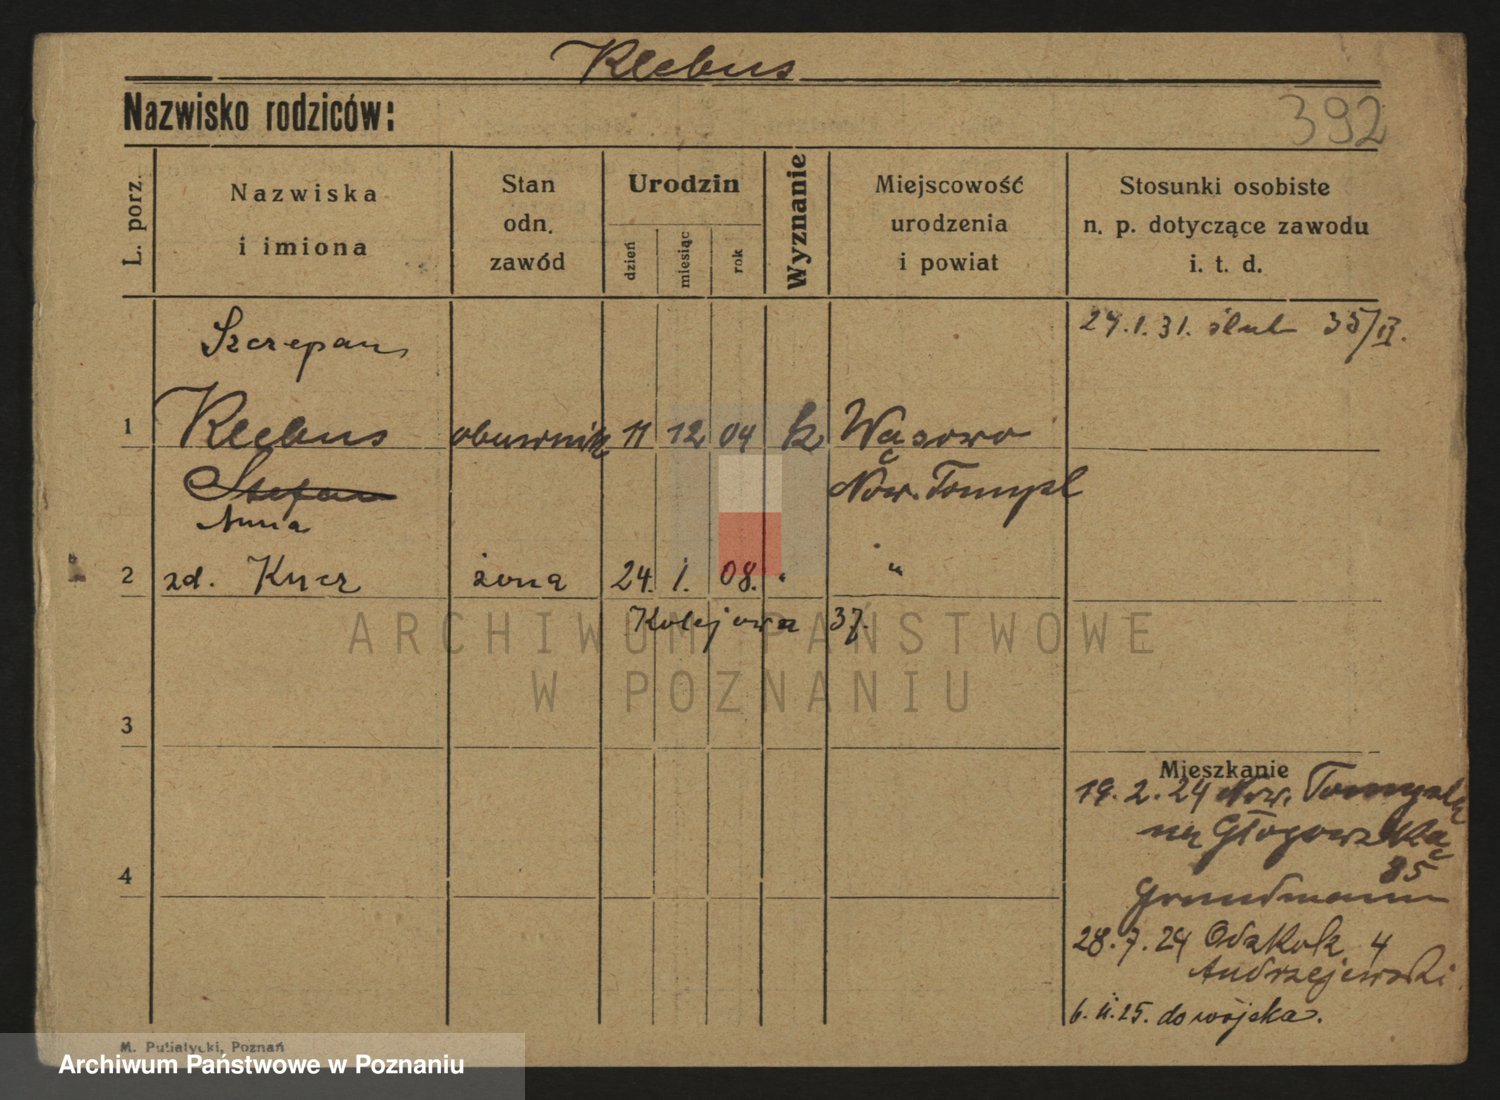 Klebus
Nazwisko rodziców:
392
L. porz.
Nazwiska
i imiona
Stan
odn.
zawód
Urodzin
dzień
miesiąc
rok
Wyznanie
Miejscowość
urodzenia
i powiat
Stosunki osobiste
n. p. dotyczące zawodu
i. t. d.
Szczepan
24.1.31. ślub 35/II.
1 Klebus obuwnik 11 12 04 k Wąsowo
Stefan Now. Tomyśl
Anna
2 zd. Kucz żona 24. 1. 08. " "
Kolejowa 37.
3
4
Mieszkanie
19.2.24 Now. Tomyśla
na Głogowską
85
Grundmann
28.7.24 Odzkok 4
Andrzejewski
6. 11. 25. do wojska.
M. Putiatycki, Poznań
ARCHIWUM PAŃSTWOWE
W POZNANIU
Archiwum Państwowe w Poznaniu